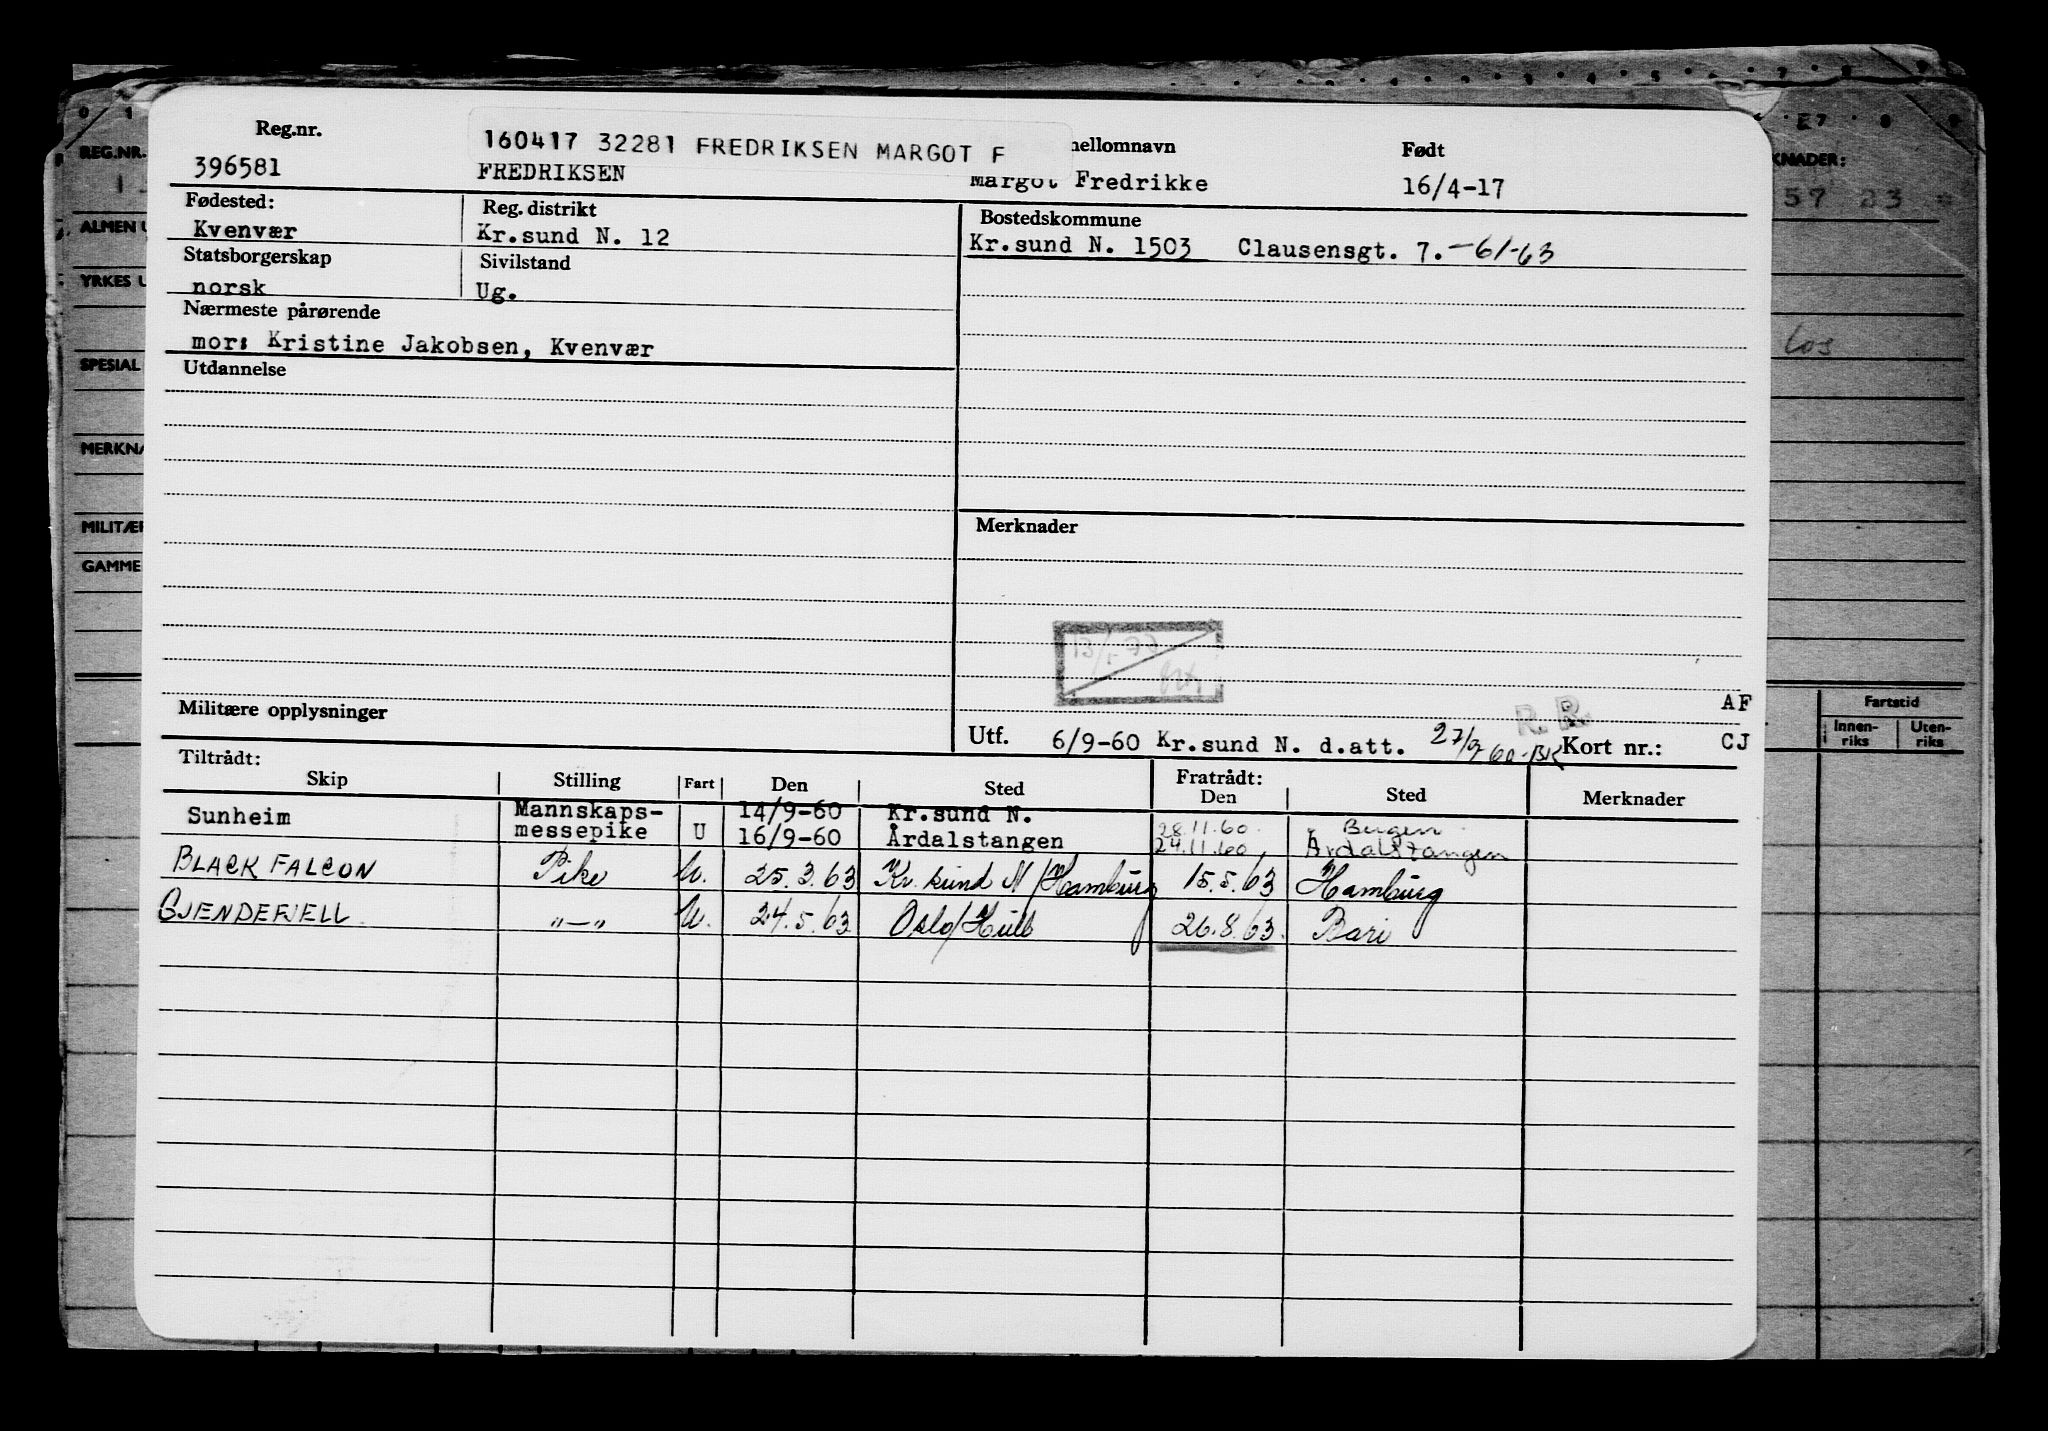 Reg.nr. 160417 32281 FREDRIKSEN MARGOT F mellomnavn Født
396581 FREDRIKSEN Margot Fredrikke 16/4-17
Fødested: Reg. distrikt Bostedskommune
Kvenvær Kr.sund N. 12 Kr.sund N. 1503 Clausensgt. 7. -61-63
Statsborgerskap Sivilstand
norsk Ug.
Nærmeste pårørende
mor: Kristine Jakobsen, Kvenvær
Utdannelse
Merknader
AF
Militære opplysninger
R.R.
Utf. 6/9-60 Kr.sund N. d.att. 27/9 60-BK Kort nr.: CJ
Tiltrådt: Fratrådt:
Skip Stilling Fart Den Sted Den Sted Merknader
Sunheim Mannskaps- 14/9-60 Kr.sund N. 28.11.60. Bergen
messepike U 16/9-60 Årdalstangen 24.11.60, Årdalstangen
BLACK FALCON Pike U. 25.3.63 Kr.sund N/Hamburg 15.5.63 Hamburg
GJENDEFJELL "—" U. 24.5.63 Oslo/Hull 26.8.63. Bari
REG.NR.
ALMEN U
YRKES U
SPESIAL
MERKNA
MILITÆR
GAMME
KNADER:
57 23
los
Fartstid
Innen-
riks
Uten-
riks